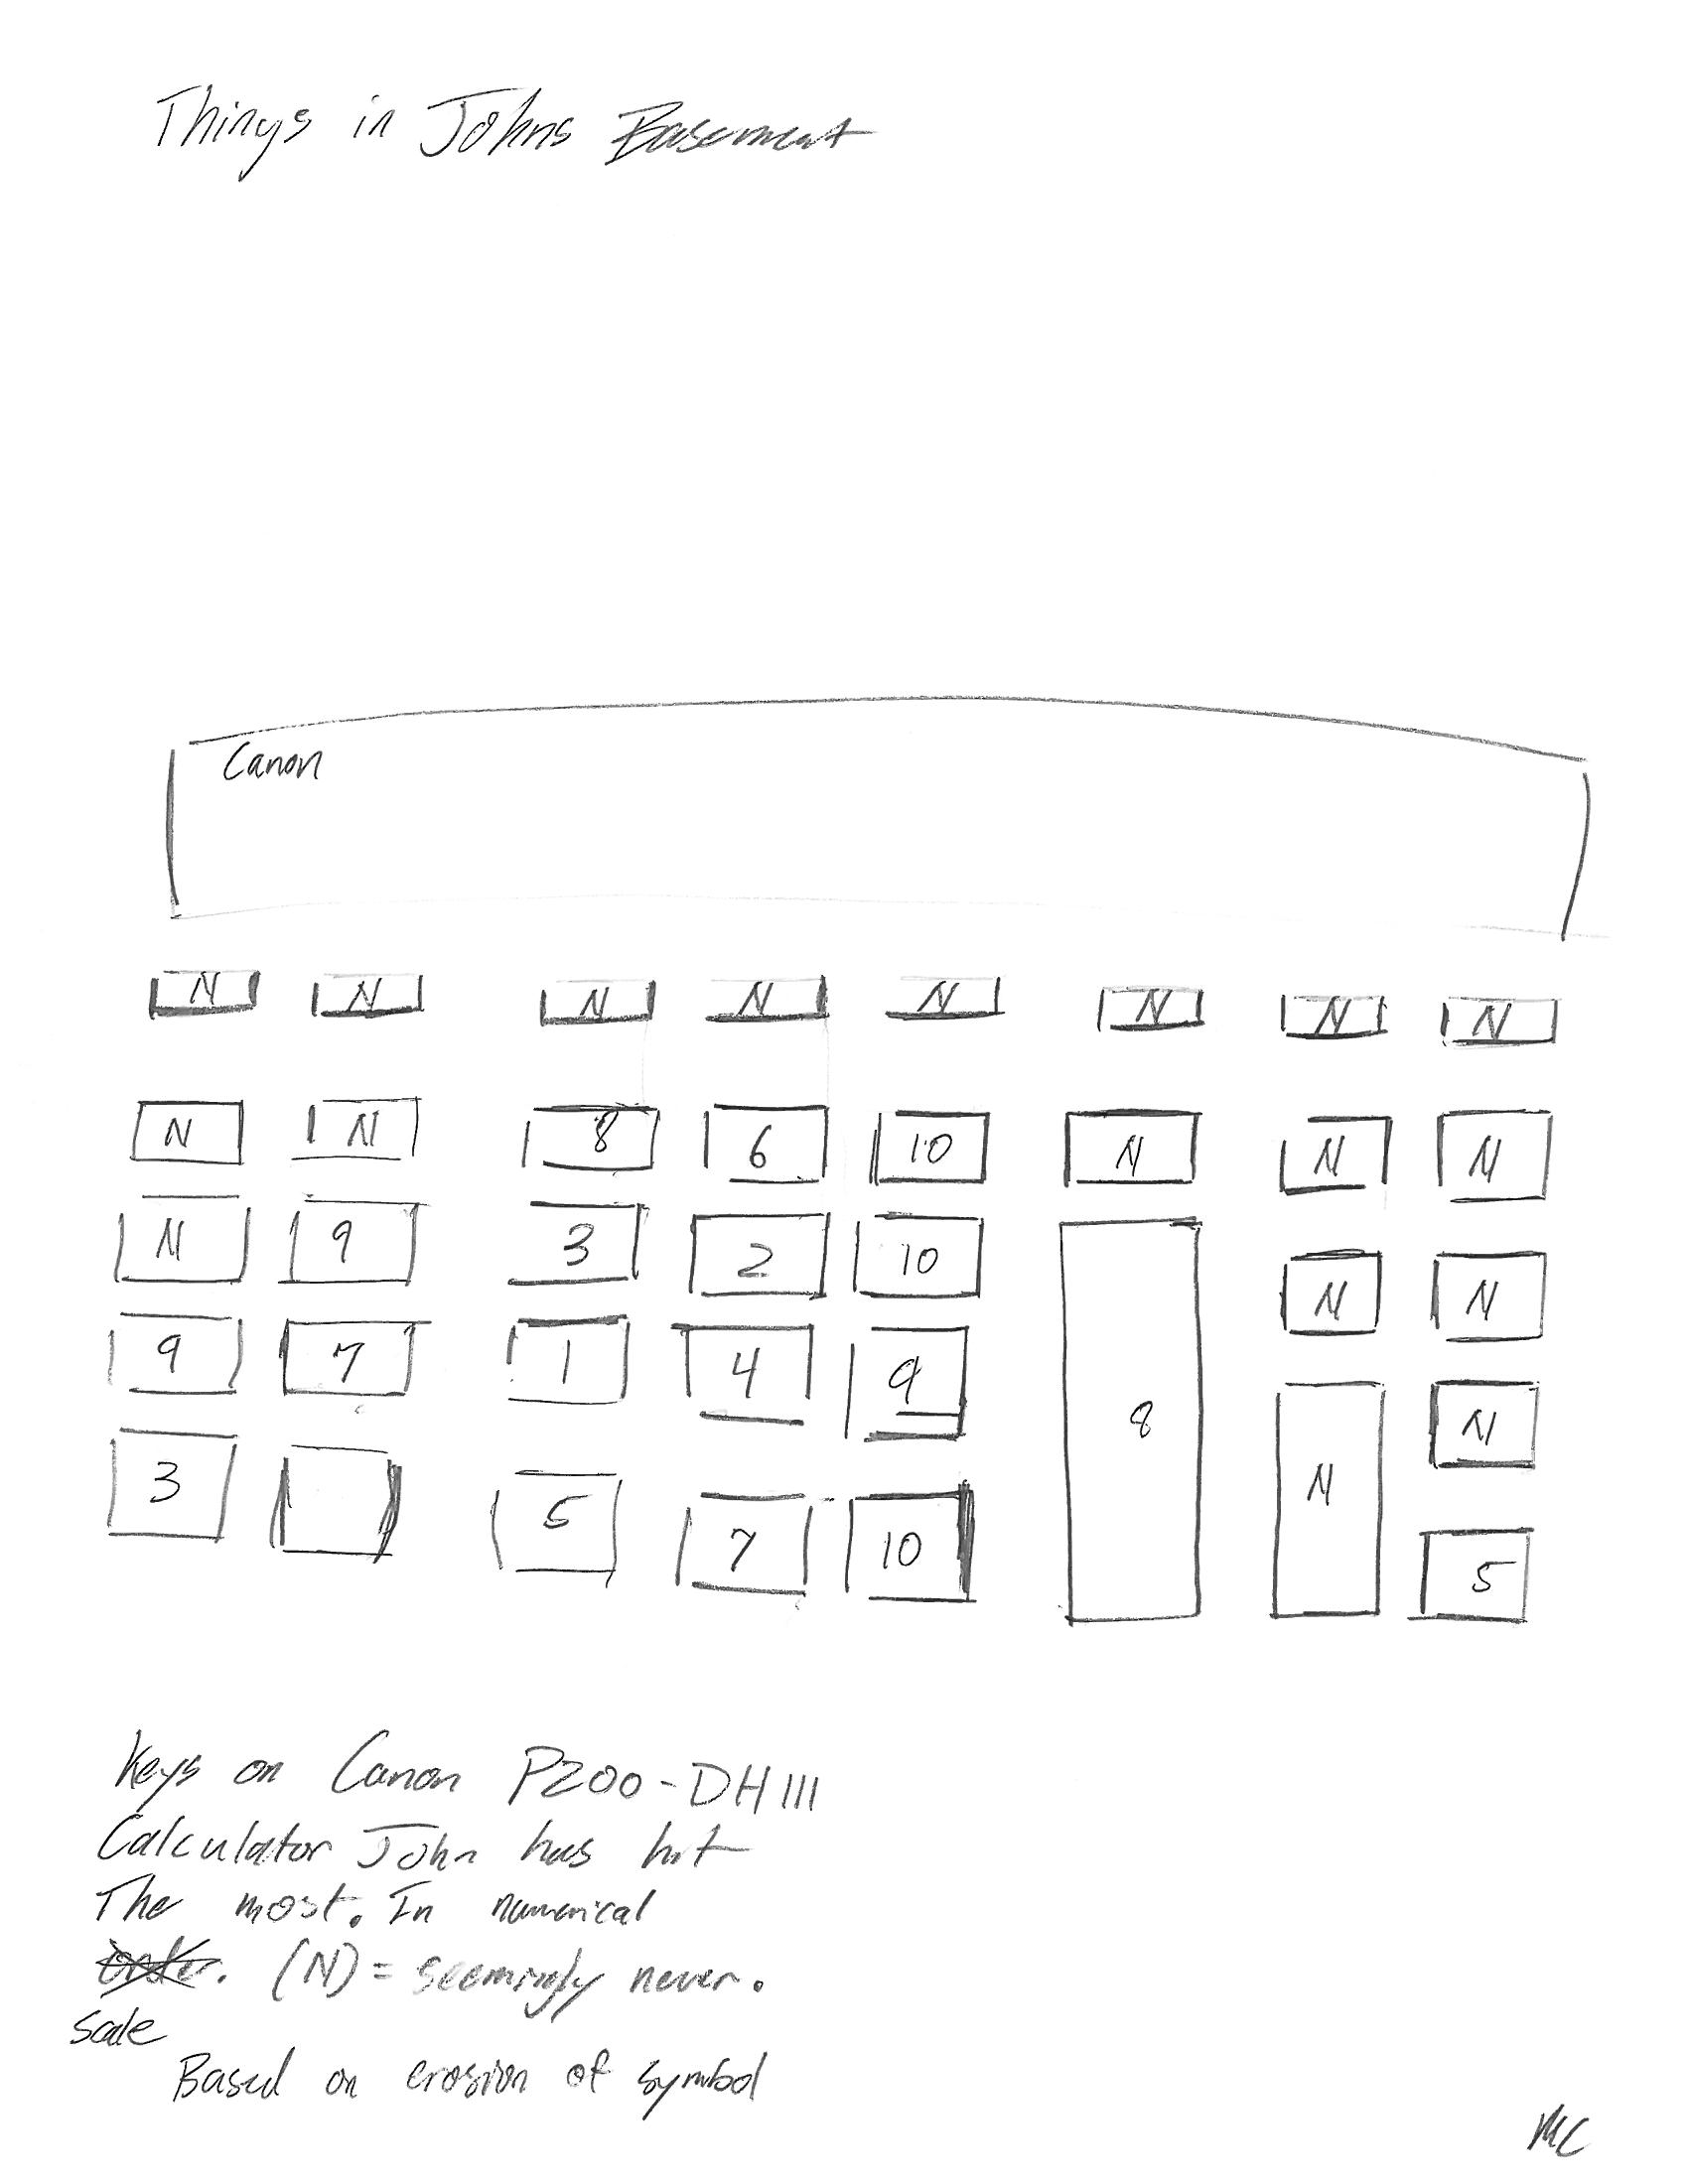 Things in Johns Basement
Canon
N N N N N N N N
N N 8 6 10 N N N
N 9 3 2 10 8 N N
9 7 1 4 9 N N
3 5 7 10 5
Keys on Canon P200-DHIII
Calculator John has hit
The most. In numerical
order. (N) = seemingly never.
scale
Based on erosion of symbol
MC